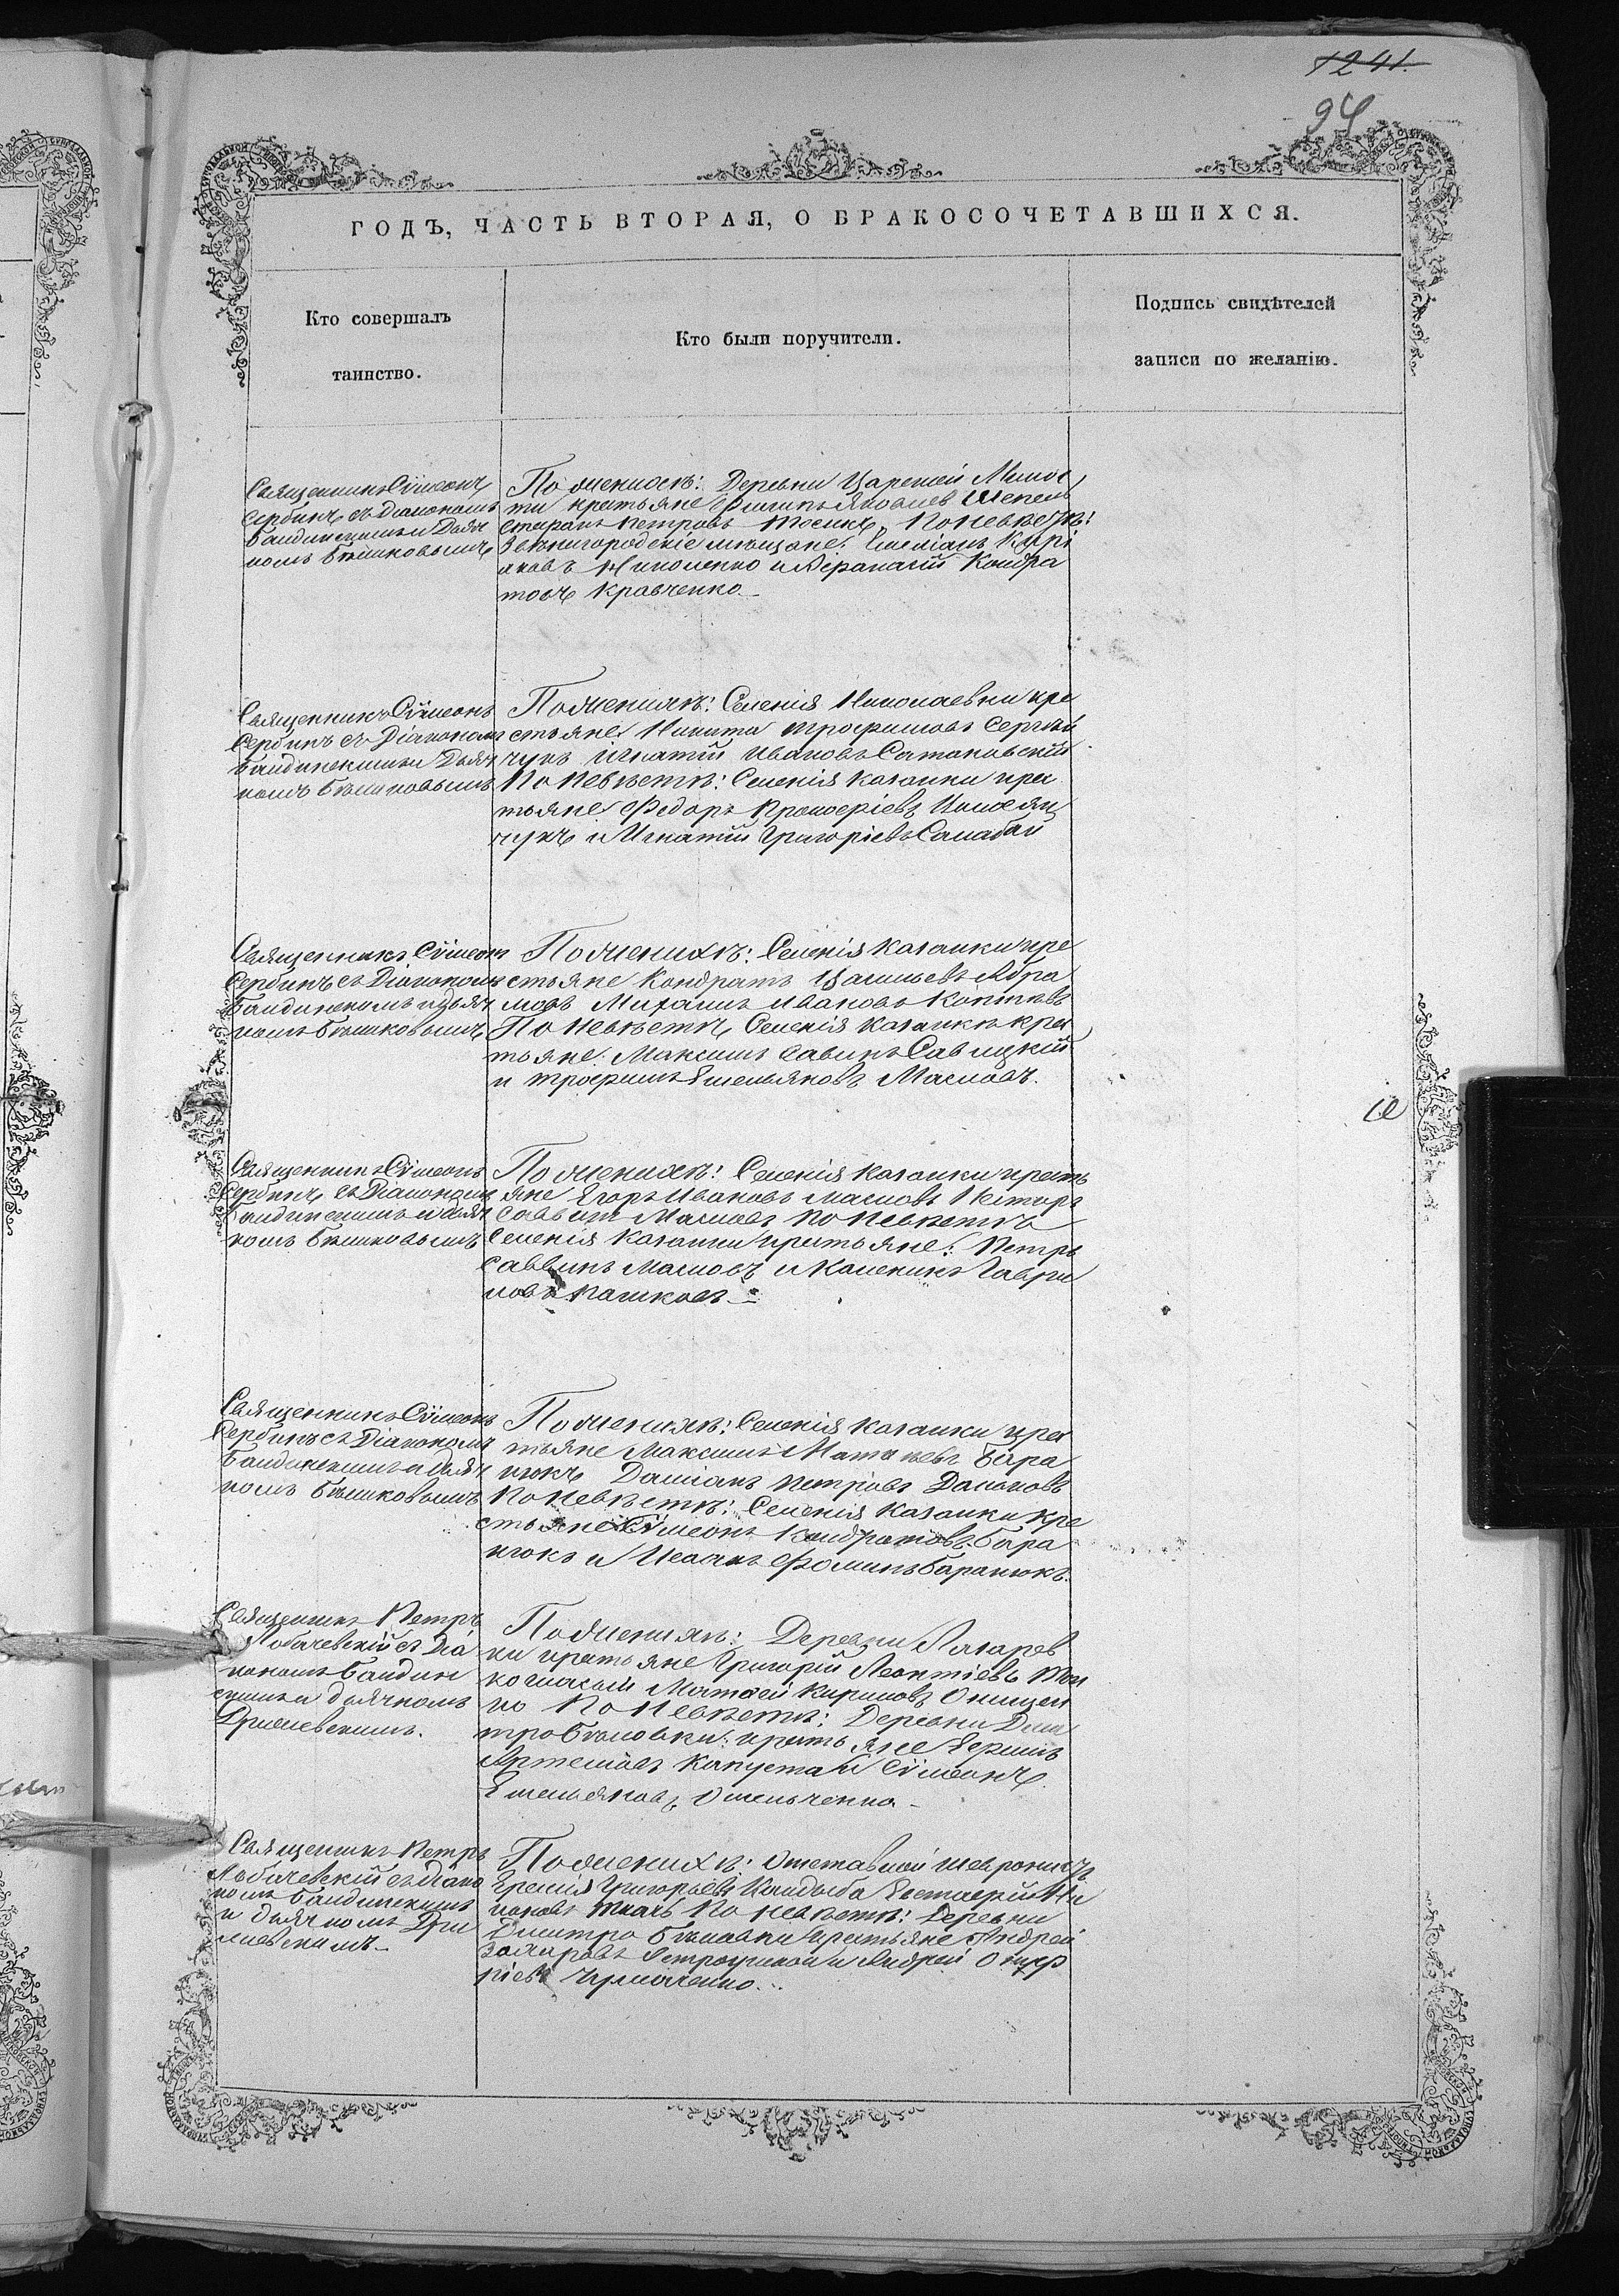 1241.
94
ГОДЪ, ЧАСТЬ ВТОРАЯ, О БРАКОСОЧЕТАВШИХСЯ.
Кто совершалъ
таинство.
Кто были поручители.
Подпись свидѣтелей
записи по желанію.
Священникъ Сѵмеонъ
Сербинъ съ Діакономъ
Бандинскимъ и Дьяч
комъ Бѣликовымъ
По женихѣ: Деревни Царской Милос
ти крестьяне Филипъ Яковлев Шепель
Петровъ По невѣстѣ:
Звѣнигородскіе мѣщане: Емеліанъ Кирі
аковъ Николенко и Афанасій Кондра
товъ Кравченко
Священникъ Сѵмеонъ
Сербинъ съ Діакономъ
Бандинскимъ и Дьяч
комъ Бѣликовымъ
По женихѣ: Селенія Николаевки кре
стьяне Никита Трофимовъ Сергій
чукъ Игнатій Ивановъ Сатановскій
По невѣстѣ: Селенія Казанки крес
тьяне Федоръ Прокофіевъ
чукъ и Игнатій Григоріевъ Салабай
Священникъ Сѵмеонъ
Сербинъ съ Діакономъ
Бандинскомъ и дьяч
комъ Бѣликовымъ
По женихѣ: Селенія Казанки кре
стьяне Кондратъ Абра
мовъ Михаилъ Ивановъ Коптевъ
По невѣстѣ Селенія Казанки крес
тьяне Максимъ Савинъ Савицкій
и Трофимъ Емельяновъ Масловъ.
Священникъ Сѵмеонъ
Сербинъ съ Діакономъ
Бандинскимъ и дьяч
комъ Бѣликовымъ
По женихѣ: Селенія Казанки кресть
яне Егоръ Ивановъ Масловъ Несторъ
Саввинъ Масловъ по невѣстѣ
Селенія Казанки крестьяне: Петръ
Саввинъ Масловъ и Каленикъ Гаври
ловъ Пашковъ
Священникъ Сѵмеонъ
Сербинъ съ Діакономъ
Бандинскимъ и Дьяч
комъ Бѣликовымъ
По женихѣ: Селенія Казанки крес
тьяне Максимъ Матвѣевъ Бара
нюкъ Даміанъ Петровъ
По невѣстѣ: Селенія Казанки кре
стьяне Сѵмеонъ Кондратовъ Бара
нюкъ и Исаакъ Фоминъ Баранюкъ.
Священникъ Петръ
Лобачевскій съ Діа
кономъ Бандин
скимъ и дьячкомъ
По женихѣ: Деревни Лазарев
ки крестьяне Григорій Леонтіевъ Тон
когласый Матфей Кириловъ Онищен
ко По невѣстѣ: Деревни Дми
тро Бѣловки: крестьяне Ефимъ
Артемовъ Капуста и Сѵмеонъ
Емельяновъ Омельченко
Священникъ Петръ
Лобачевскій съ діако
номъ Бандинскимъ
и дьячкомъ
По женихѣ: Отставной
Еремія Григорьевъ Кандыба Евстафій Ни
коновъ Ткачъ По невѣстѣ: Деревни
Дмитро Бѣловки крестьяне Андрей
Петрофиковъ и Андрей Онуф
ріевъ